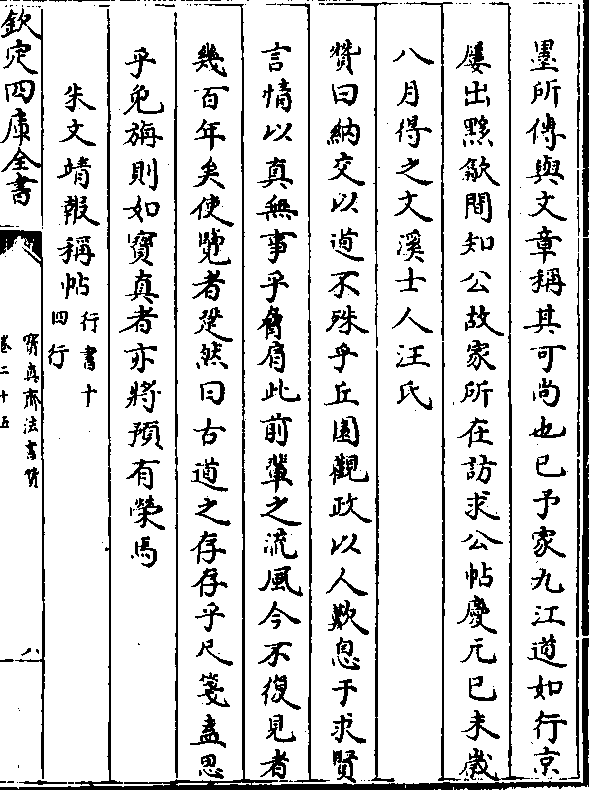 墨所傳與文章稱其可尚也已予家九江道如行京
屢出黟歙間知公故家所在訪求公帖慶元已未歲
八月得之文溪士人汪氏
贊曰納交以道不殊乎丘園觀政以人歎息于求賢
言情以真無事乎脅肩此前輩之流風今不復見者
幾百年矣使覽者跫然曰古道之存存乎尺箋盍思
乎兔旃則如寶真者亦將預有榮焉
朱文靖報稱帖行書十
四行
欽定四庫全書
寶真齋法書贊
卷二十五
八